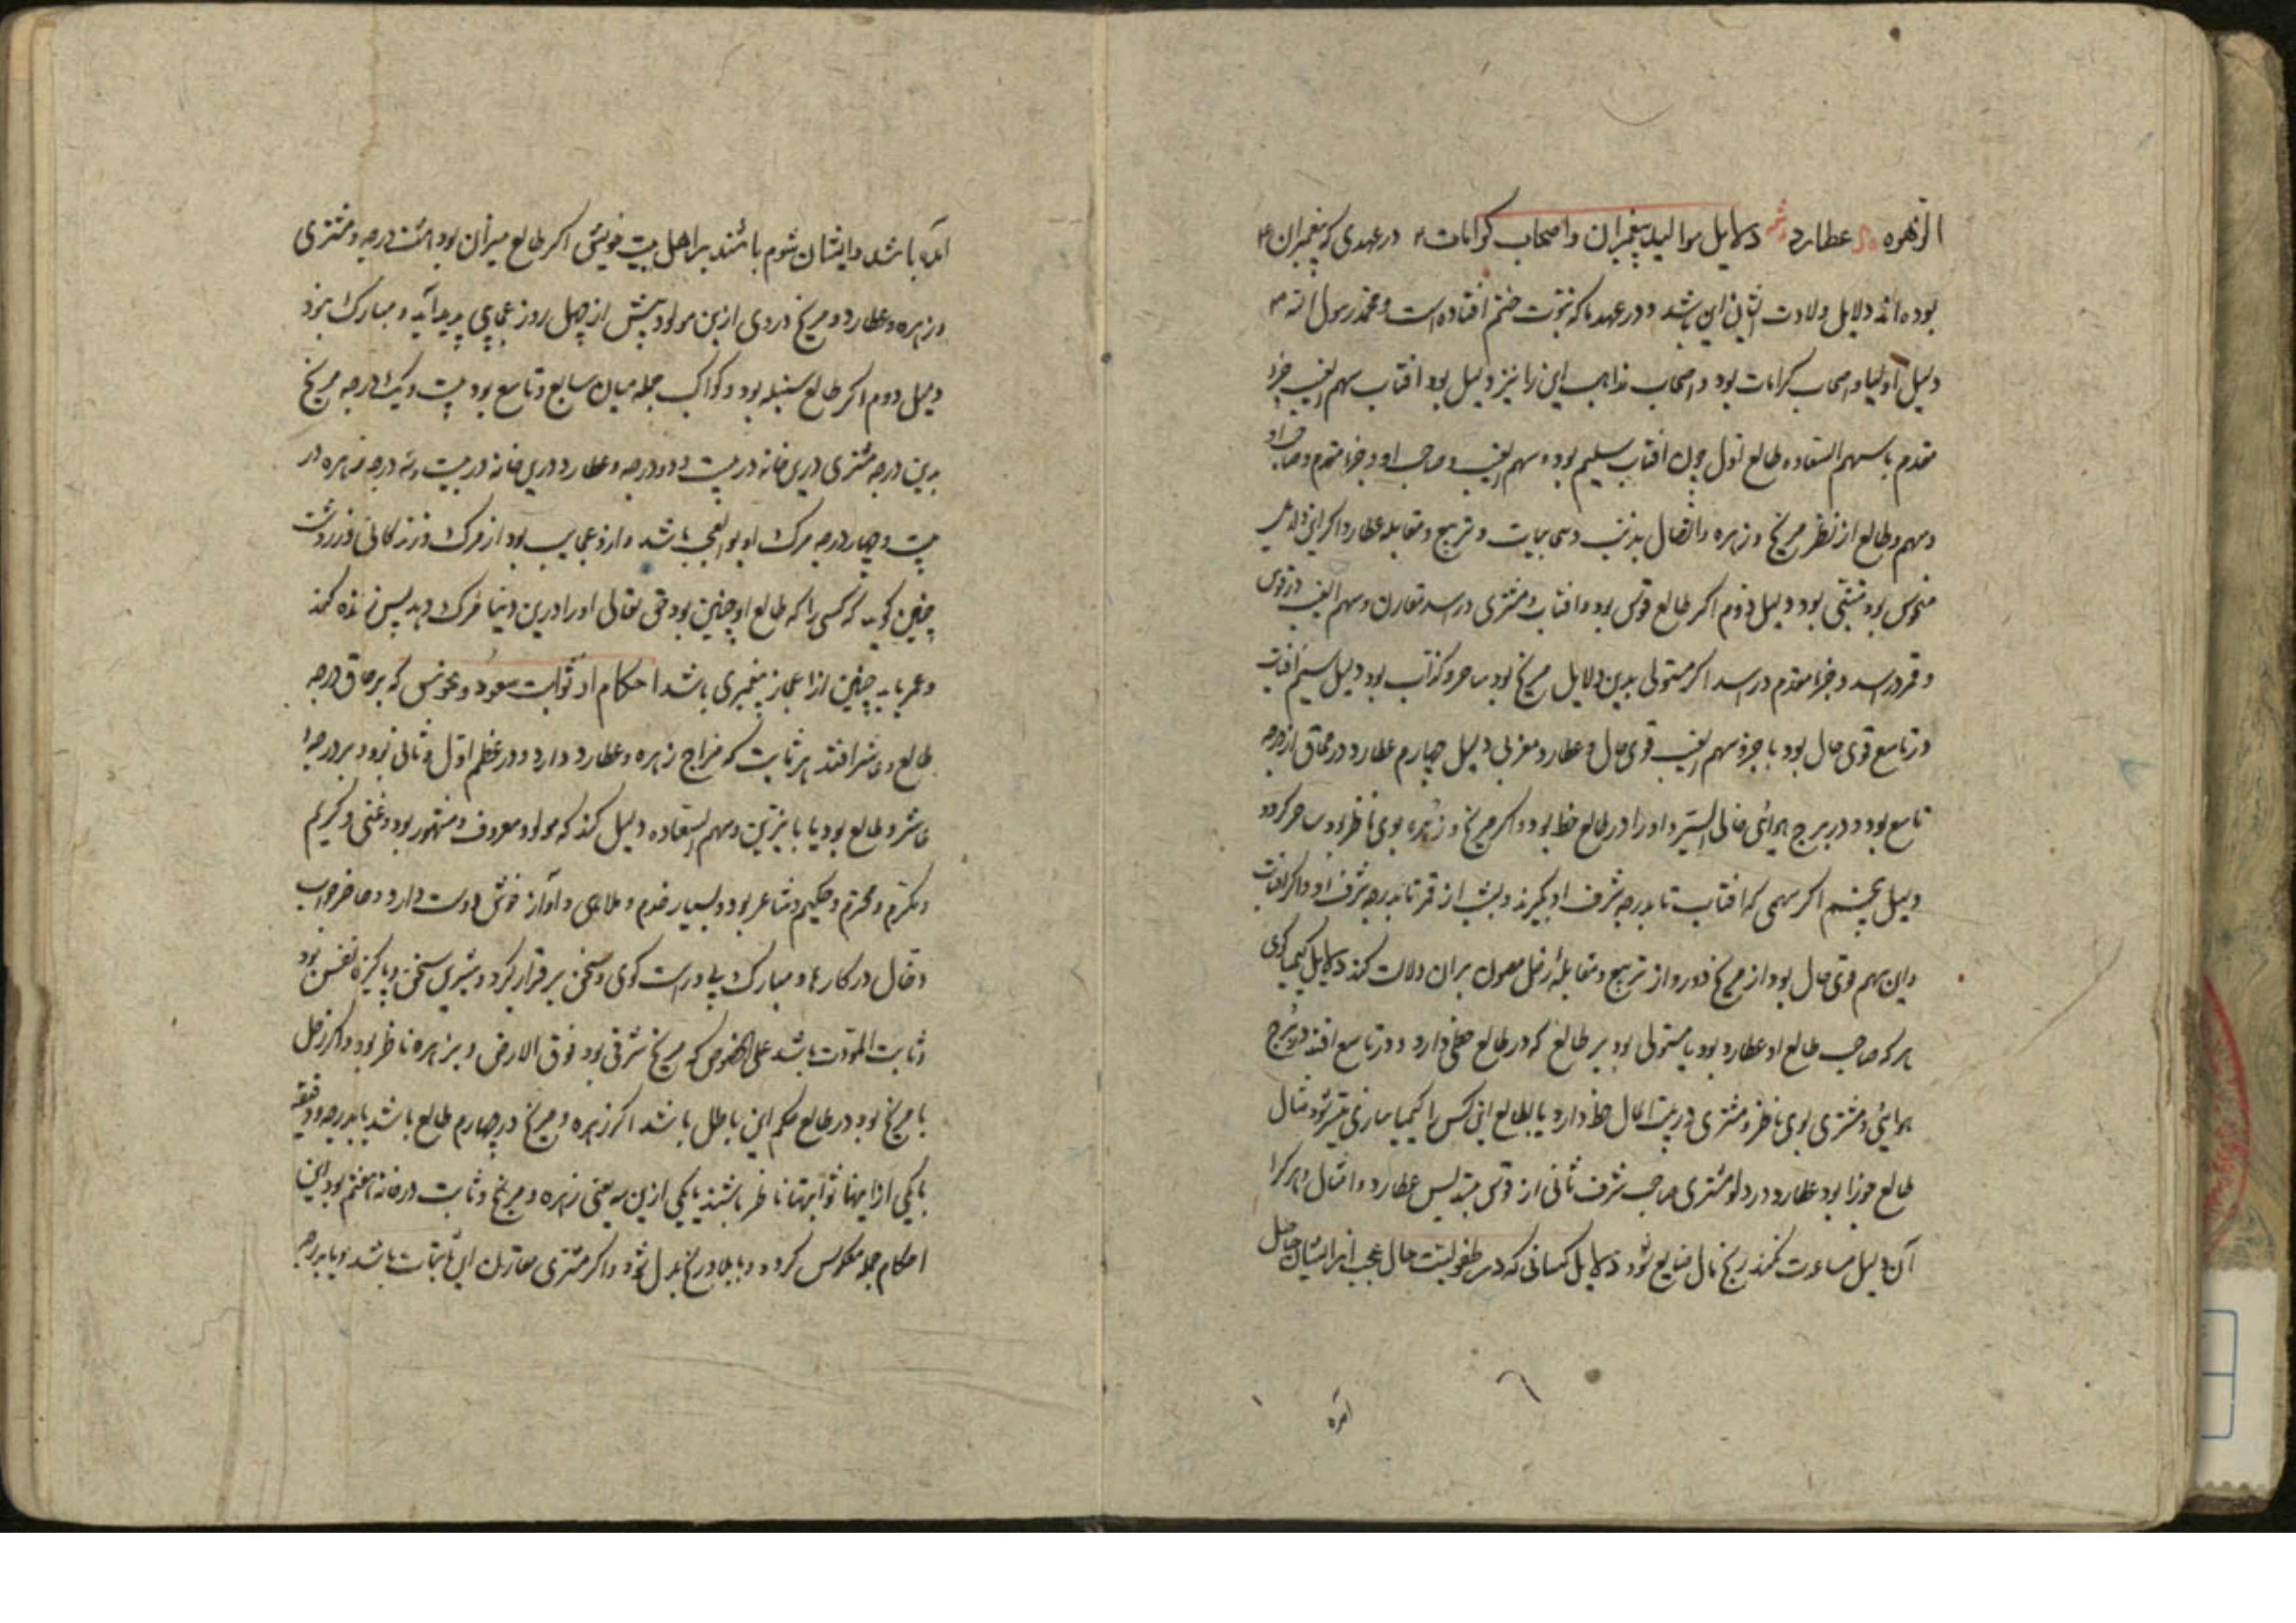 الزهره عطارد دلایل موالید پیغمبران واصحاب کرامات در عهدی که پیغمبران
بوده اند دلایل ولادت ایشان این باشد و در عهد ما که نبوت ختم افتاده است و محمد رسول الله
دلیل اولیا واصحاب کرامات بود واصحاب مذاهب این را نیز دلیل بود افتاب سهم الغیب جزا
مقدم با سهم السعاده طالع اول چون افتاب سلیم بود و سهم الغیب وصاحب او وجزء مقدم وصاحب او
وسهم وطالع از نظر مریخ و زهره واتصال بذنب و تربیع و مقابله عطارد اکر این دلیل
منحوس بود متنبی بود دلیل دوم اکر طالع قوس بود وافتاب ومشتری در اسد مقارن وسهم الغیب در قوس
وقمر در اسد وجزء مقدم در اسد اکر مستولی بدین دلایل مریخ بود ساحر وکذاب بود دلیل سیم افتاب
در تاسع قوی حال بود با جزو سهم الغیب قوی حال وعطارد مغربی دلیل چهارم عطارد در حاق از درجه
تاسع بود و در برج هوائی خالی السیر واورا در طالع حظ بود واکر مریخ و زهره بوی ناظر بود ساحر کردد
دلیل پنجم اکر سهمی که افتاب تا بدرجه شرف او بگیرند وبشب از قمر تا بدرجه شرف او واکر افتاب
واین سهم قوی حال بود از مریخ دور و از تربیع ومقابله زحل مصون بران دلالت کند دلایل کیمیا کری
هر که صاحب طالع او عطارد بود یا مستولی بود بر طالع که در طالع حظی دارد و در تاسع افتد در برج
هوایئ ومشتری بوی ناظر ومشتری در بیت المال حظ دارد یا بطالع این کس را کیمیا سازی میسر شود مثال
طالع جوزا بود عطارد در دلو مشتری صاحب شرف ثانی از قوس بتسدیس عطارد وامثال وهر کرا
آن دلیل مساعدت نکند رنج مال ضایع شود دلایل کسانی که در طفولیت حال عجب از ایشان حاصل
امده
آمده باشد وایشان شوم باشند بر اهل بیت خویش اکر طالع میزان بود هشت درجه ومشتری
وزهره وعطارد ومریخ در وی ازین مولود پیش از چهل روز عجایبی پدید آید و مبارک بود
دلیل دوم اکر طالع سنبله بود وکواکب جمله میان سابع وتاسع بود بیست ویک درجه مریخ
بدین درجه مشتری درین خانه در بیست ودو درجه وعطارد درین خانه در بیست وسه درجه زهره در
بیست وچهار درجه مرک او بوالعجب باشد واز وعجایب بود از مرک وزندکانی وزردشت
چنین کوید که کسی را که طالع او چنین بود حق تعالی اورا درین دنیا مرک دهد پس زنده کند
وعمر یابد چنین از اعجاز پیغمبری باشد احکام از ثوابت سعود و نحوس که بر حاق درجه
طالع وعاشر افتد هر ثابت که مزاج زهره وعطارد دارد و در عظم اول وثانی بود و بر درجه
عاشر وطالع بود یا با نیرین وسهم السعاده دلیل کند که مولود معروف ومشهور بود وغنی وکریم
ومکرم ومحترم وحکیم وشاعر بود وبسیار خدم وملاهی وآواز خوش دوست دارد وحاضر جواب
وفعال در کارها و مبارک پی و راست کوی وسخن برقرار کرد وشیرین سخن وپاکیزه نفس بود
وثابت المودت باشد علی الخصوص که مریخ شرقی بود فوق الارض وبزهره ناظر بود واکر زحل
با مریخ بود در طالع حکم این باطل باشد اکر زهره ومریخ در چهارم طالع باشد یا بدرجه ودقیقه
یا یکی از اینها ثوابتها ناظر باشند یا یکی ازین سه یعنی زهره ومریخ وثابت در خانه هفتم بود این
احکام جمله معکوس کردد و ببلا و رنج بدل شود واکر مشتری مقارن این ثابتات باشد ویا بدرجه